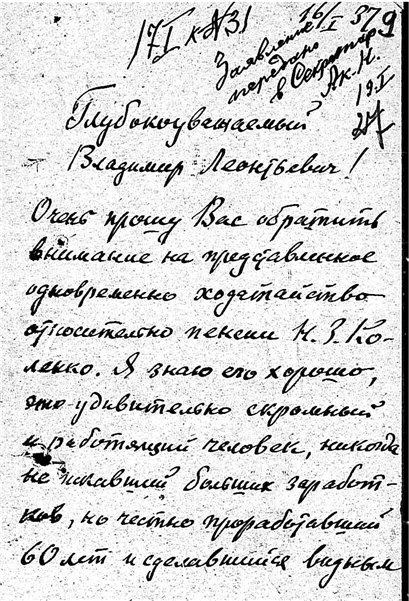 17/I к №31
16/I 37 9
Заявление
передано
в Секретар.
Ак. Н.
19.I
Глубокоуважаемый
Владимир Леонтьевич!
Очень прошу Вас обратить
внимание на представленное
одновременно ходатайство
относительно пенсии Н. З. Ко-
ленко. Я знаю его хорошо,
это удивительно скромный
и работящий человек, никогда
не искавший больших заработ-
ков, но честно проработавший
60 лет и сделавшийся видным